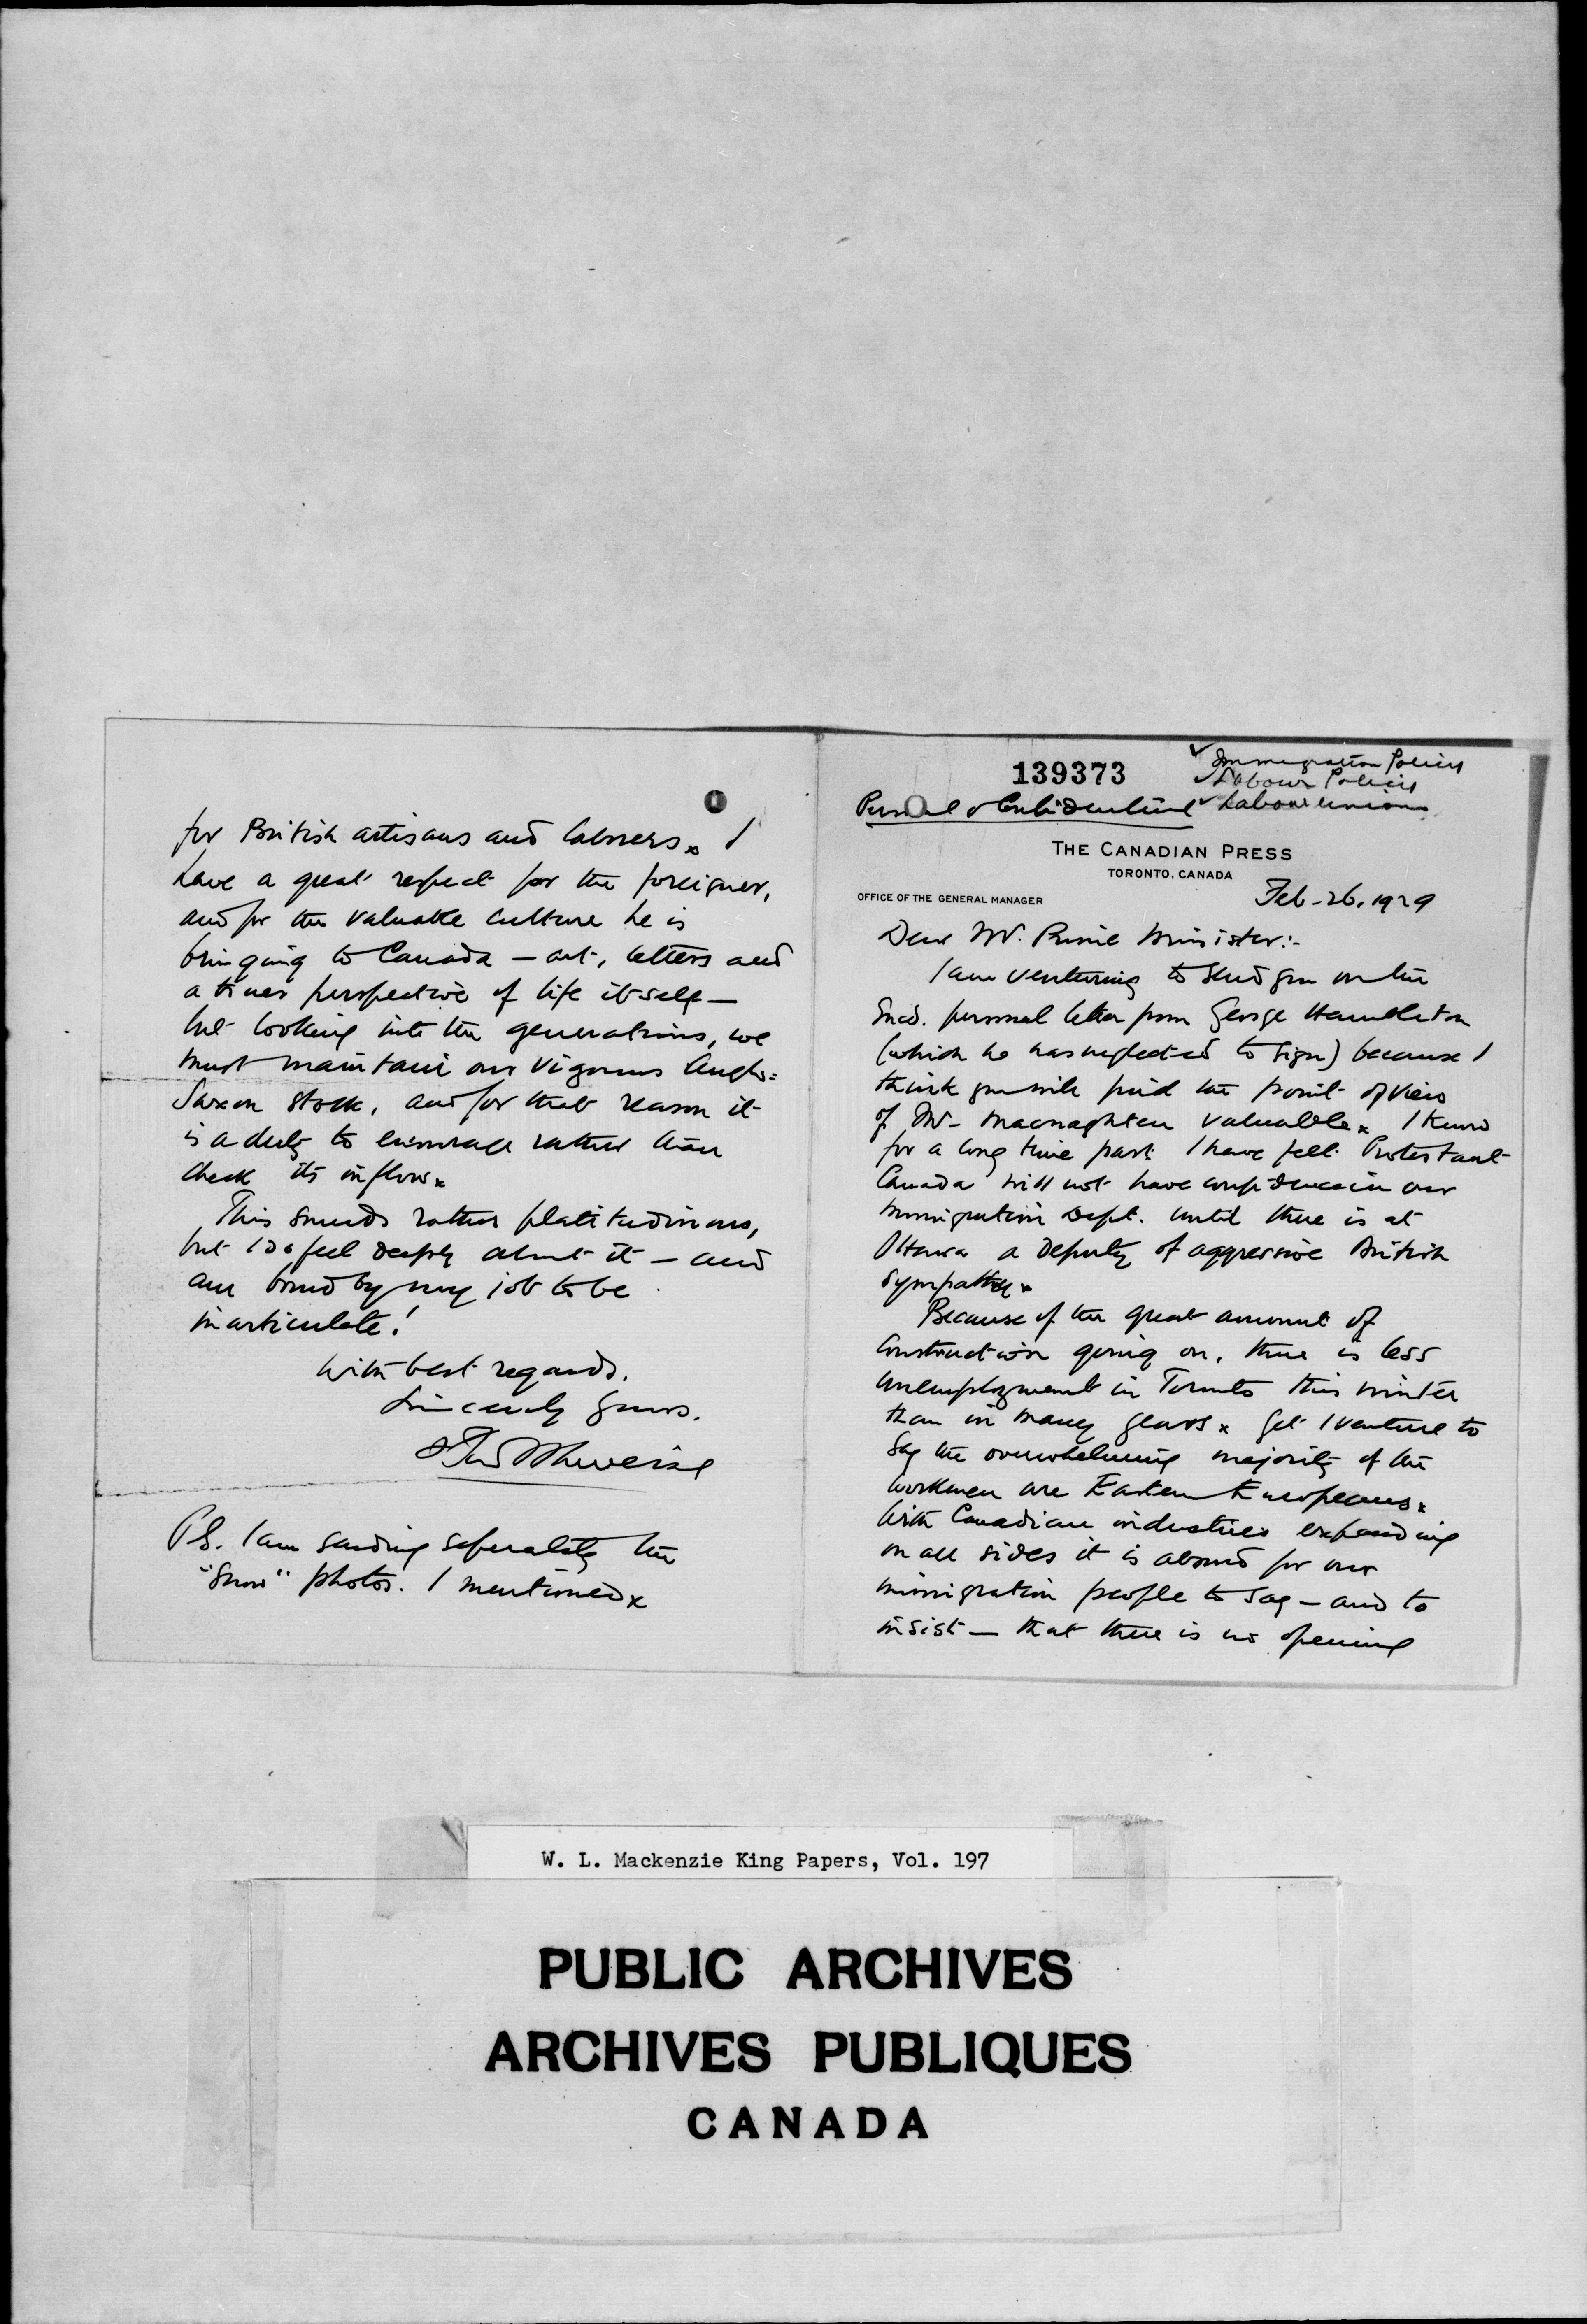 139373
Immigration Policy
Labour Policy
Labour Unions
Personal & Confidential
THE CANADIAN PRESS
TORONTO, CANADA
OFFICE OF THE GENERAL MANAGER
Feb-26, 1929
Dear Mr. Prime Minister:-
I am venturing to send you on the
Encd. personal letter from George Hambleton
(which he has neglected to sign) because I
think you will find the point of view
of Mr- Macnaghten valuable x I know
for a long time past I have felt Protestant
Canada will not have confidence in our
Immigration Dept. until there is at
Ottawa a Deputy of aggressive British
sympathy x
Because of the great amount of
construction going on, there is less
unemployment in Toronto this winter
than in many years x Yet I venture to
say the overwhelming majority of the
workmen are Eastern Europeans x
With Canadian industries expanding
on all sides it is absurd for our
immigration people to say - and to
insist - that there is no opening
for British artisans and laborers x I
have a great respect for the foreigner,
and for the valuable culture he is
bringing to Canada - art, letters and
a truer perspective of life itself -
but looking into the generations, we
must maintain our vigorous Anglo=
Saxon stock, and for that reason it
is a duty to encourage rather than
check its inflow x
This sounds rather platitudinous,
but I do feel deeply about it - and
am bound by my job to be
inarticulate!
With best regards,
Sincerely yours,
PS. I am sending seperately the
"Snow" photos. I mentioned x
W. L. Mackenzie King Papers, Vol. 197
PUBLIC ARCHIVES
ARCHIVES PUBLIQUES
CANADA